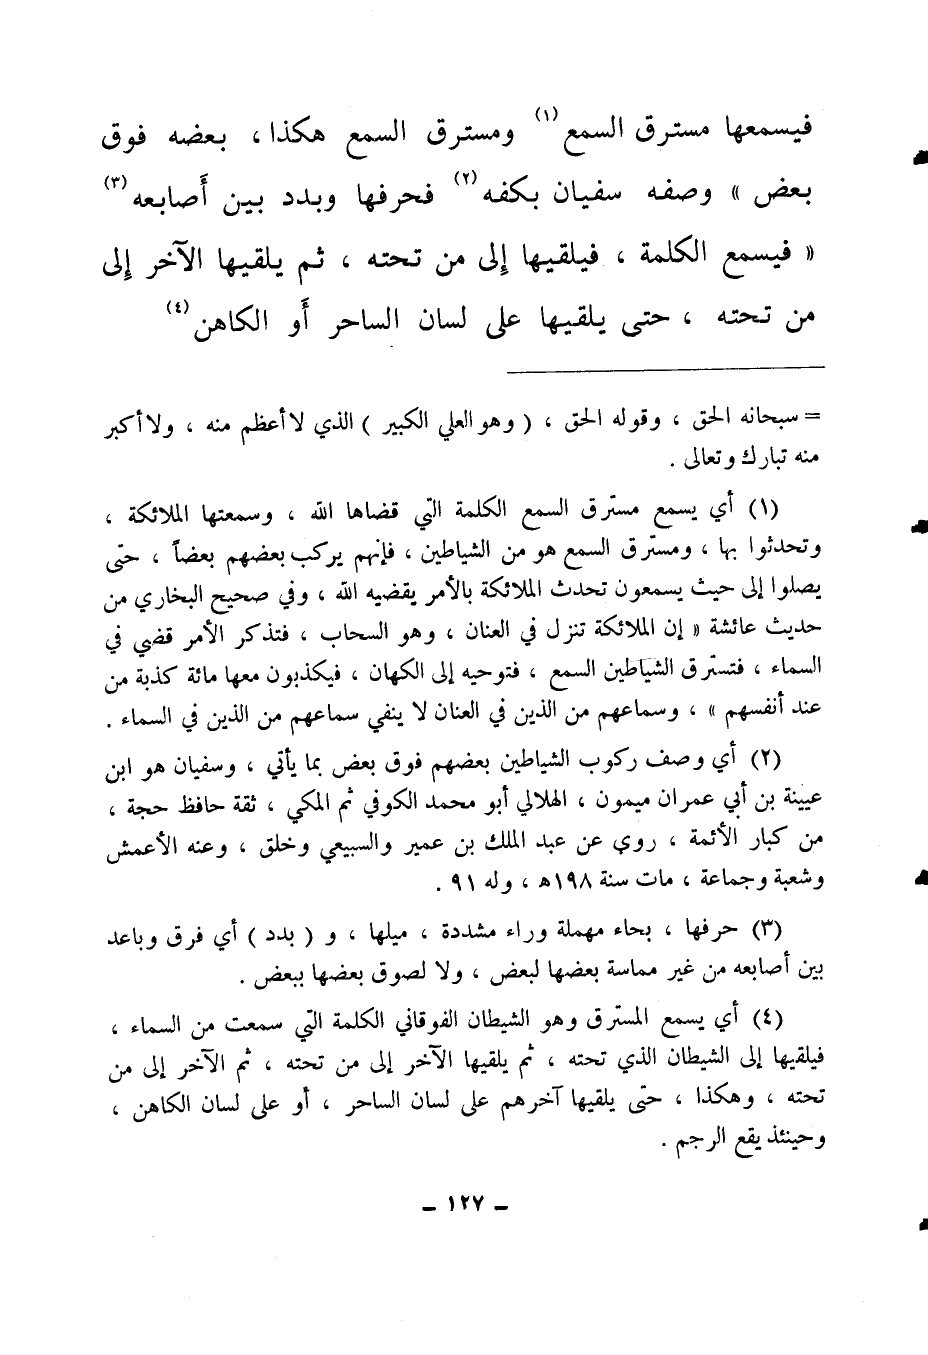 فيسمعها مسترق السمع (١) ومسترق السمع هكذا ، بعضه فوق
بعض » وصفه سفيان بكفه (٢) فحرفها وبدد بين أَصابعه (٣)
« فيسمع الكلمة ، فيلقيها إِلى من تحته ، ثم يلقيها الآخر إِلى
من تحته ، حتى يلقيها على لسان الساحر أَو الكاهن (٤)
= سبحانه الحق ، وقوله الحق ، ( وهو العلي الكبير ) الذي لا أعظم منه ، ولا أكبر
منه تبارك وتعالى .
(١) أي يسمع مسترق السمع الكلمة التي قضاها الله ، وسمعتها الملائكة ،
وتحدثوا بها ، ومسترق السمع هو من الشياطين ، فإنهم يركب بعضهم بعضاً ، حتى
يصلوا إلى حيث يسمعون تحدث الملائكة بالأمر يقضيه الله ، وفي صحيح البخاري من
حديث عائشة « إن الملائكة تنزل في العنان ، وهو السحاب ، فتذكر الأمر قضي في
السماء ، فتسترق الشياطين السمع ، فتوحيه إلى الكهان ، فيكذبون معها مائة كذبة من
عند أنفسهم » ، وسماعهم من الذين في العنان لا ينفي سماعهم من الذين في السماء .
(٢) أي وصف ركوب الشياطين بعضهم فوق بعض بما يأتي ، وسفيان هو ابن
عيينة بن أبي عمران ميمون ، الهلالي أبو محمد الكوفي ثم المكي ، ثقة حافظ حجة ،
من كبار الأئمة ، روي عن عبد الملك بن عمير والسبيعي وخلق ، وعنه الأعمش
وشعبة وجماعة ، مات سنة ١٩٨ه ، وله ٩١ .
(٣) حرفها ، بحاء مهملة وراء مشددة ، ميلها ، و ( بدد ) أي فرق وباعد
بين أصابعه من غير مماسة بعضها لبعض ، ولا لصوق بعضها ببعض .
(٤) أي يسمع المسترق وهو الشيطان الفوقاني الكلمة التي سمعت من السماء ،
فيلقيها إلى الشيطان الذي تحته ، ثم يلقيها الآخر إلى من تحته ، ثم الآخر إلى من
تحته ، وهكذا ، حتى يلقيها آخرهم على لسان الساحر ، أو على لسان الكاهن ،
وحينئذ يقع الرجم .
– ١٢٧ –